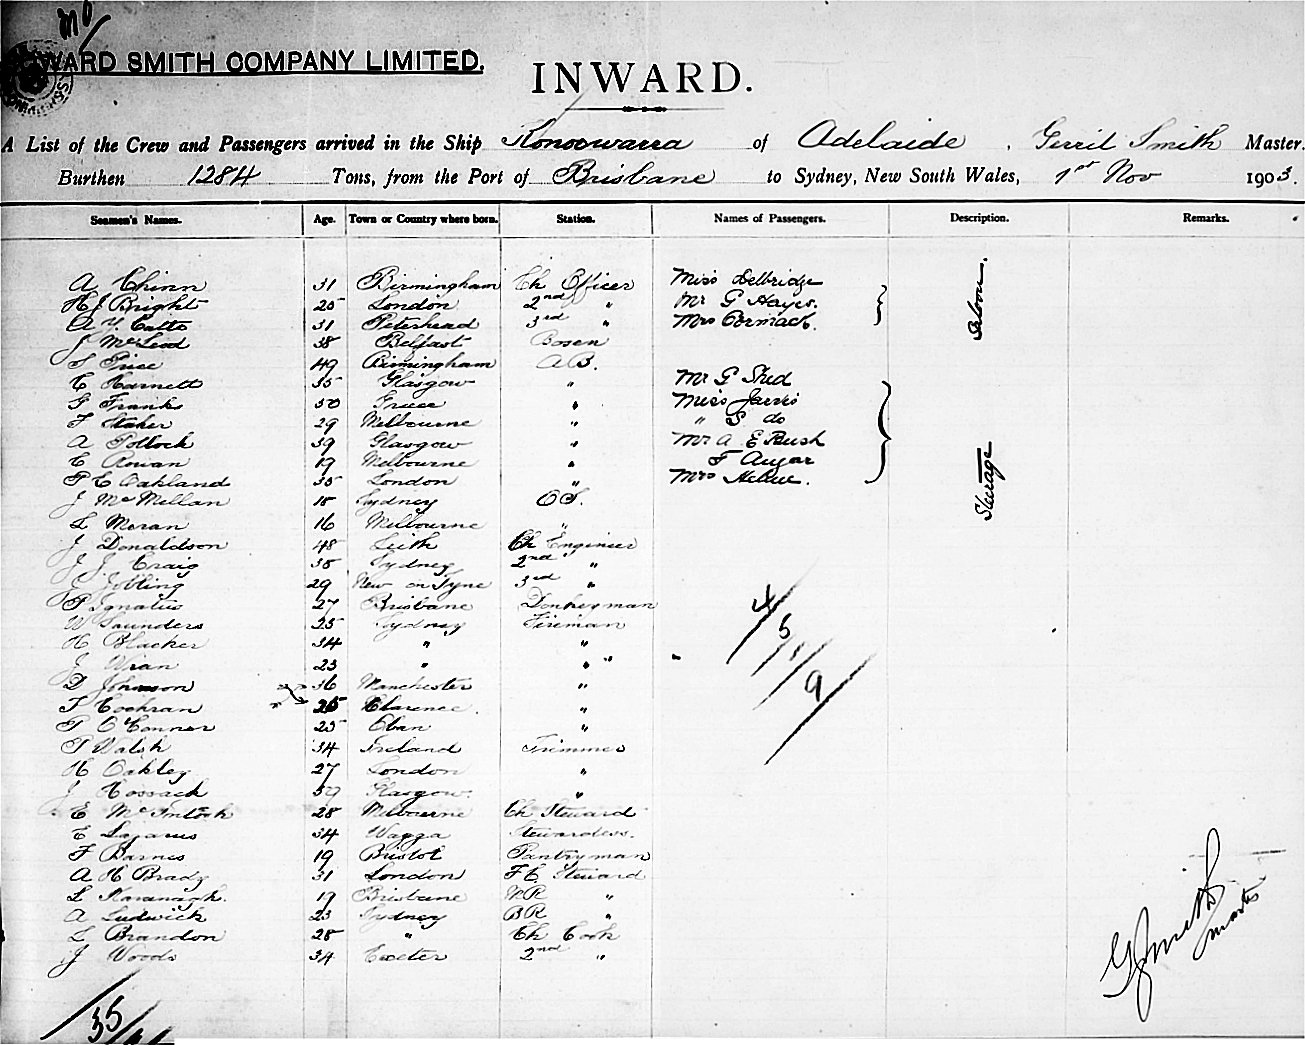 WARD SMITH COMPANY LIMITED.
INWARD.
A List of the Crew and Passengers arrived in the Ship Konoowarra of Adelaide, Gerrit Smith Master.
Burthen 1284 Tons, from the Port of Brisbane to Sydney, New South Wales, 1st Nov 1903.
Seamen's Names. Age. Town or Country where born. Station. Names of Passengers. Description. Remarks.
A Chinn 31 Birmingham Ch Officer Miss Delbridge
H J Bright 25 London 2nd " Mr G Hayes. Saloon.
A Y Catto 31 Peterhead 3rd " Mrs Cormack.
J McLeod 38 Belfast Bosen
S Price 49 Birmingham A B.
C Harnett 35 Glasgow " Mr G Shed
G Franks 50 Greece " Miss Jarvis
F Staker 29 Melbourne " " S do
A Pollock 39 Glasgow " Mr A E Bush
C Rowan 19 Melbourne " F Augar Steerage
P E Oakland 35 London " Mrs
J McMellan 18 Sydney O S.
L Moran 16 Melbourne "
J Donaldson 48 Leith Ch Engineer
J J Craig 38 Sydney 2nd "
J Jobling 29 New on Tyne 3rd "
P Ignatius 27 Brisbane Donkeyman
W Saunders 25 Sydney Fireman
H Blacker 34 " "
J Wran 23 " " "
D Johnson 36 Manchester "
T Cochran 25 Clarence. "
P O'Connor 25 Oban "
P Walsh 34 Ireland Trimmer
H Oakley 27 London "
J Cossack 59 Glasgow. "
E McIntosh 28 Melbourne Ch Steward
E Lazarus 34 Wagga Stewardess.
F Barnes 19 Bristol Pantryman
A H Brady 31 London F C. Steward
L Kavanagh. 19 Brisbane "
A Ludwick 23 Sydney B R "
L Brandon 28 " Ch Cook
J Woods 34 Exeter 2nd "
4/5/1/9
G Smith
Master
35/